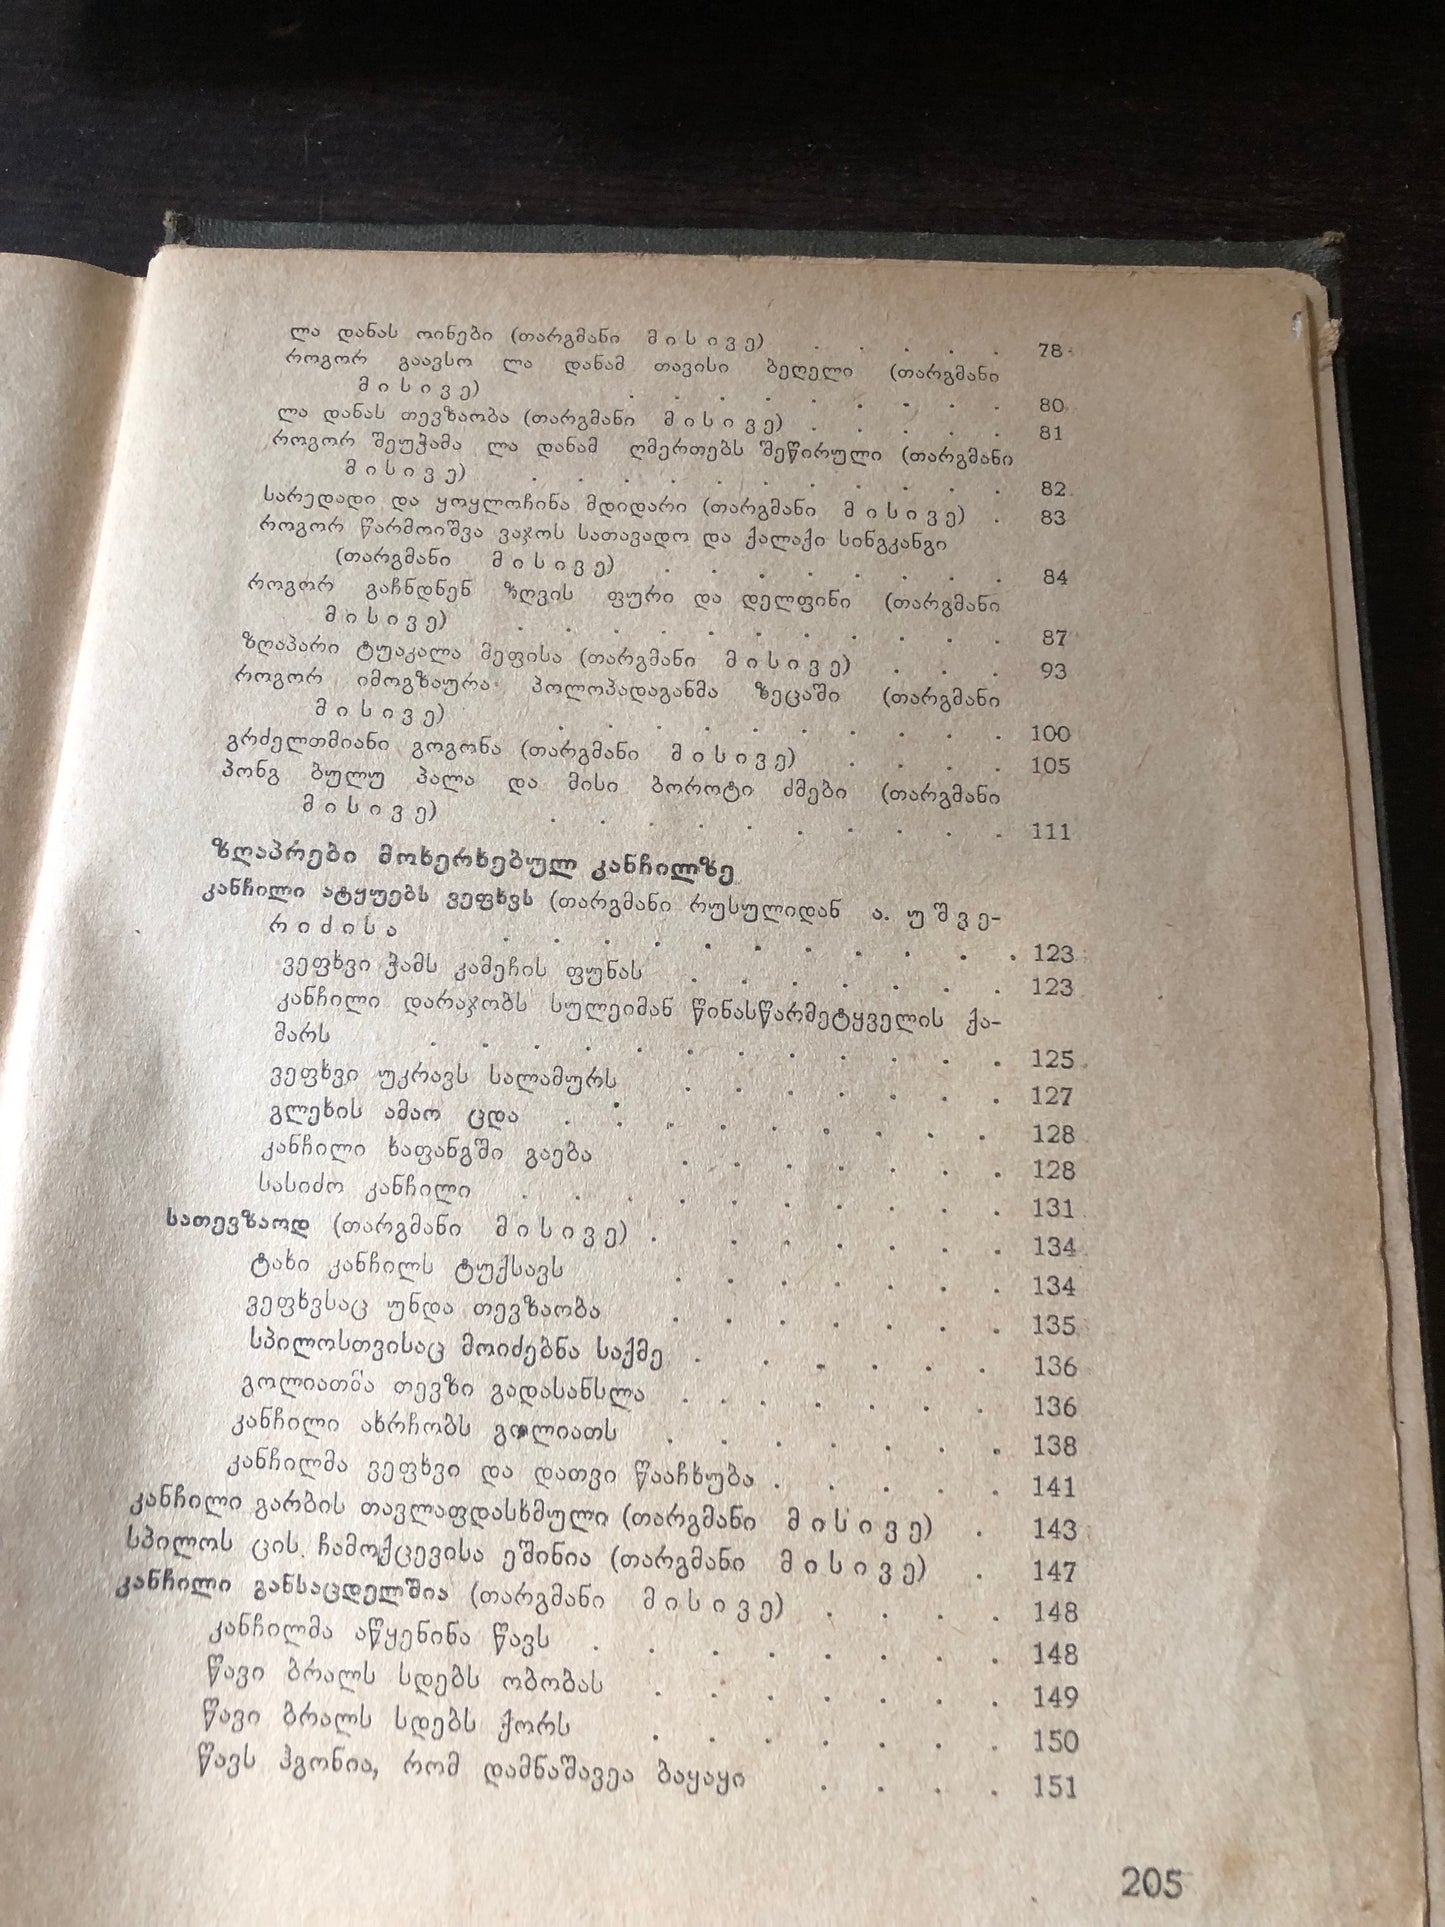 ლა დანას ოინები (თარგმანი მისივე) . . . . . 78
როგორ გაავსო ლა დანამ თავისი ბეღელი (თარგმანი
მისივე) . . . . . . . . . 80
ლა დანას თევზაობა (თარგმანი მისივე) . . . . . 81
როგორ შეუჭამა ლა დანამ ღმერთებს შეწირული (თარგმანი
მისივე) . . . . . . . . . . . 82
სარედადი და ყოყლოჩინა მდიდარი (თარგმანი მისივე) . 83
როგორ წარმოიშვა ვაჯოს სათავადო და ქალაქი სინგკანგი
(თარგმანი მისივე) . . . . . . . . 84
როგორ გაჩნდნენ ზღვის ფური და დელფინი (თარგმანი
მისივე) . . . . . . . . . . . 87
ზღაპარი ტუაკალა მეფისა (თარგმანი მისივე) . . . 93
როგორ იმოგზაურა პოლოპადაგანმა ზეცაში (თარგმანი
მისივე) . . . . . . . . . . 100
გრძელთმიანი გოგონა (თარგმანი მისივე) . . . . 105
პონგ ბულუ პალა და მისი ბოროტი ძმები (თარგმანი
მისივე) . . . . . . . . . . 111
ზღაპრები მოხერხებულ კანჩილზე
კანჩილი ატყუებს ვეფხვს (თარგმანი რუსულიდან ა. უშვე-
რიძისა . . . . . . . . . . . 123
ვეფხვი ჭამს კამეჩის ფუნას . . . . . . . 123
კანჩილი დარაჯობს სულეიმან წინასწარმეტყველის ქა-
მარს . . . . . . . . . . . . 125
ვეფხვი უკრავს სალამურს . . . . . . . 127
გლეხის ამაო ცდა . . . . . . . . . 128
კანჩილი ხაფანგში გაება . . . . . . . 128
სასიძო კანჩილი . . . . . . . . . . 131
სათევზაოდ (თარგმანი მისივე) . . . . . . . 134
ტახი კანჩილს ტუქსავს . . . . . . . 134
ვეფხვსაც უნდა თევზაობა . . . . . . . 135
სპილოსთვისაც მოიძებნა საქმე . . . . . . 136
გოლიათმა თევზი გადასანსლა . . . . . . . 136
კანჩილი ახრჩობს გოლიათს . . . . . . . 138
კანჩილმა ვეფხვი და დათვი წააჩხუბა . . . . . 141
კანჩილი გარბის თავლაფდასხმული (თარგმანი მისივე) . 143
სპილოს ცის ჩამოქცევისა ეშინია (თარგმანი მისივე) . 147
კანჩილი განსაცდელშია (თარგმანი მისივე) . . . . 148
კანჩილმა აწყენინა წავს . . . . . . . . 148
წავი ბრალს სდებს ობობას . . . . . . . 149
წავი ბრალს სდებს ქორს . . . . . . . 150
წავს ჰგონია, რომ დამნაშავეა ბაყაყი . . . . 151
205